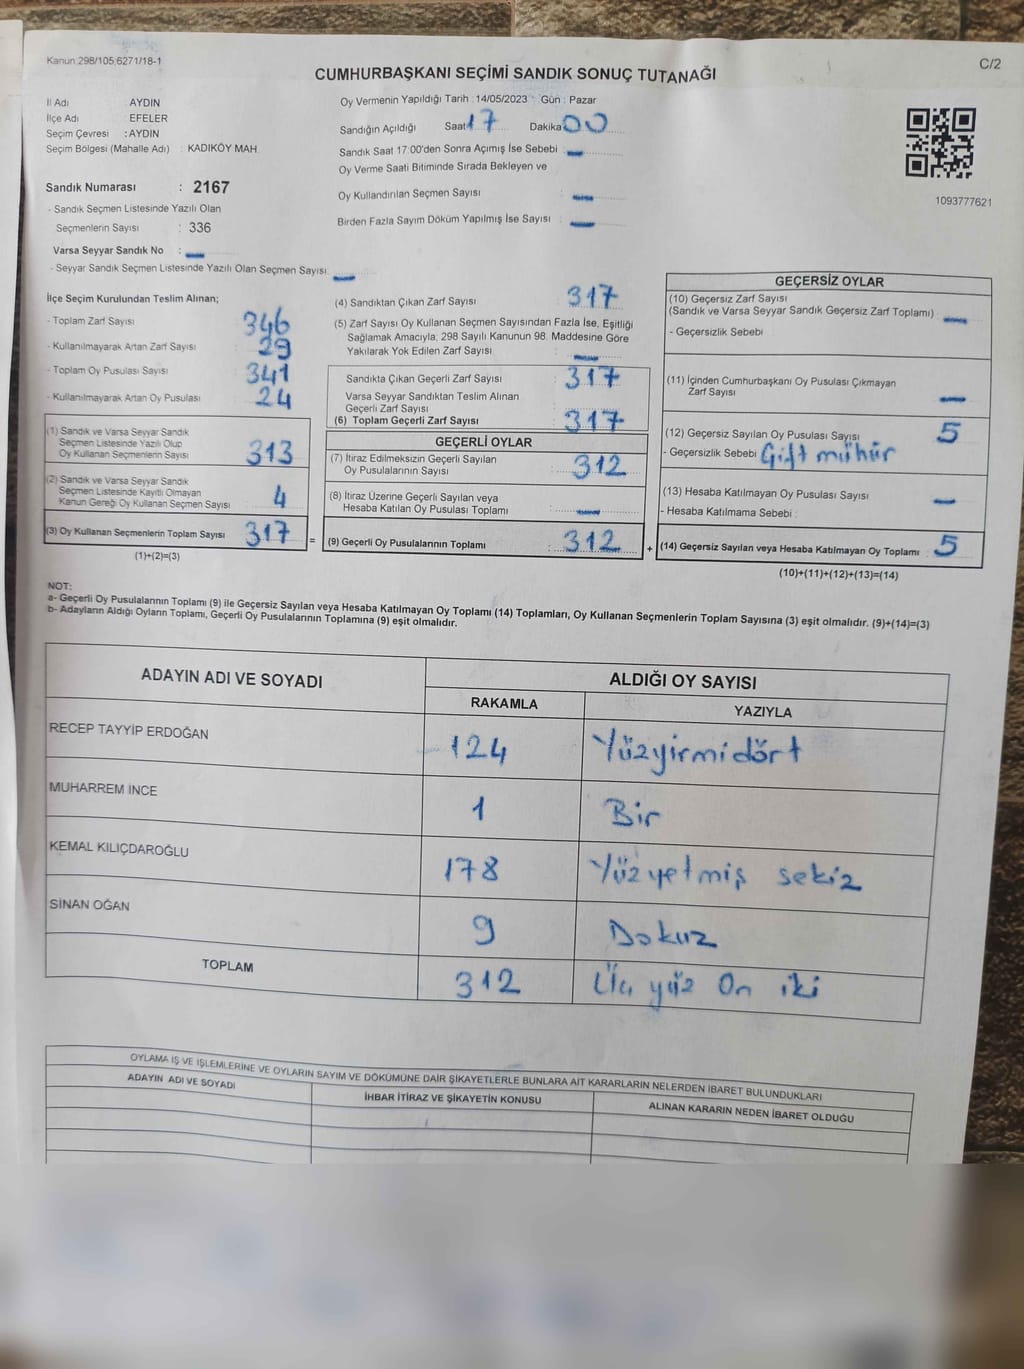 Kanun:298/105,6271/18-1
C/2
CUMHURBAŞKANI SEÇİMİ SANDIK SONUÇ TUTANAĞI
İl Adı AYDIN
İlçe Adı EFELER
Seçim Çevresi : AYDIN
Seçim Bölgesi (Mahalle Adı) : KADIKÖY MAH.
Sandık Numarası : 2167
- Sandık Seçmen Listesinde Yazılı Olan
Seçmenlerin Sayısı : 336
Varsa Seyyar Sandık No : —
- Seyyar Sandık Seçmen Listesinde Yazılı Olan Seçmen Sayısı: —
Oy Vermenin Yapıldığı Tarih : 14/05/2023 Gün : Pazar
Sandığın Açıldığı Saat 17 Dakika 00
Sandık Saat 17:00'den Sonra Açımış İse Sebebi : —
Oy Verme Saati Bitiminde Sırada Bekleyen ve
Oy Kullandırılan Seçmen Sayısı : —
Birden Fazla Sayım Döküm Yapılmış İse Sayısı : —
1093777621
İlçe Seçim Kurulundan Teslim Alınan;
- Toplam Zarf Sayısı 346
- Kullanılmayarak Artan Zarf Sayısı 29
- Toplam Oy Pusulası Sayısı 341
- Kullanılmayarak Artan Oy Pusulası 24
(1) Sandık ve Varsa Seyyar Sandık
Seçmen Listesinde Yazılı Olup
Oy Kullanan Seçmenlerin Sayısı 313
(2) Sandık ve Varsa Seyyar Sandık
Seçmen Listesinde Kayıtlı Olmayan
Kanun Gereği Oy Kullanan Seçmen Sayısı 4
(3) Oy Kullanan Seçmenlerin Toplam Sayısı 317 =
(1)+(2)=(3)
(4) Sandıktan Çıkan Zarf Sayısı 317
(5) Zarf Sayısı Oy Kullanan Seçmen Sayısından Fazla İse, Eşitliği
Sağlamak Amacıyla, 298 Sayılı Kanunun 98. Maddesine Göre
Yakılarak Yok Edilen Zarf Sayısı : —
Sandıkta Çıkan Geçerli Zarf Sayısı : 317
Varsa Seyyar Sandıktan Teslim Alınan
Geçerli Zarf Sayısı :
(6) Toplam Geçerli Zarf Sayısı : 317
GEÇERLİ OYLAR
(7) İtiraz Edilmeksizin Geçerli Sayılan
Oy Pusulalarının Sayısı : 312
(8) İtiraz Üzerine Geçerli Sayılan veya
Hesaba Katılan Oy Pusulası Toplamı : —
(9) Geçerli Oy Pusulalarının Toplamı : 312 +
GEÇERSİZ OYLAR
(10) Geçersiz Zarf Sayısı
(Sandık ve Varsa Seyyar Sandık Geçersiz Zarf Toplamı) —
- Geçersizlik Sebebi :
(11) İçinden Cumhurbaşkanı Oy Pusulası Çıkmayan
Zarf Sayısı —
(12) Geçersiz Sayılan Oy Pusulası Sayısı 5
- Geçersizlik Sebebi Çift mühür
(13) Hesaba Katılmayan Oy Pusulası Sayısı —
- Hesaba Katılmama Sebebi :
(14) Geçersiz Sayılan veya Hesaba Katılmayan Oy Toplamı : 5
(10)+(11)+(12)+(13)=(14)
NOT:
a- Geçerli Oy Pusulalarının Toplamı (9) ile Geçersiz Sayılan veya Hesaba Katılmayan Oy Toplamı (14) Toplamları, Oy Kullanan Seçmenlerin Toplam Sayısına (3) eşit olmalıdır. (9)+(14)=(3)
b- Adayların Aldığı Oyların Toplamı, Geçerli Oy Pusulalarının Toplamına (9) eşit olmalıdır.
ADAYIN ADI VE SOYADI ALDIĞI OY SAYISI
RAKAMLA YAZIYLA
RECEP TAYYİP ERDOĞAN 124 Yüzyirmidört
MUHARREM İNCE 1 Bir
KEMAL KILIÇDAROĞLU 178 Yüzyetmiş sekiz
SİNAN OĞAN 9 Dokuz
TOPLAM 312 Üç yüz On iki
OYLAMA İŞ VE İŞLEMLERİNE VE OYLARIN SAYIM VE DÖKÜMÜNE DAİR ŞİKAYETLERLE BUNLARA AİT KARARLARIN NELERDEN İBARET BULUNDUKLARI
ADAYIN ADI VE SOYADI İHBAR İTİRAZ VE ŞİKAYETİN KONUSU ALINAN KARARIN NEDEN İBARET OLDUĞU